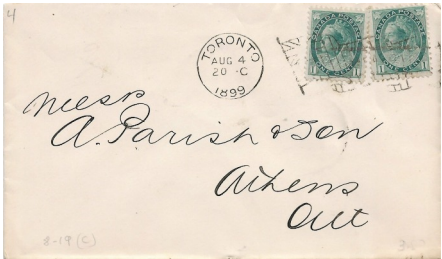 4
TORONTO
AUG 4
20 · C
1899
CANADA POSTAGE
CANADA POSTAGE
Messrs
A. Parish & Son
Athens
Ont
8-19 (C)